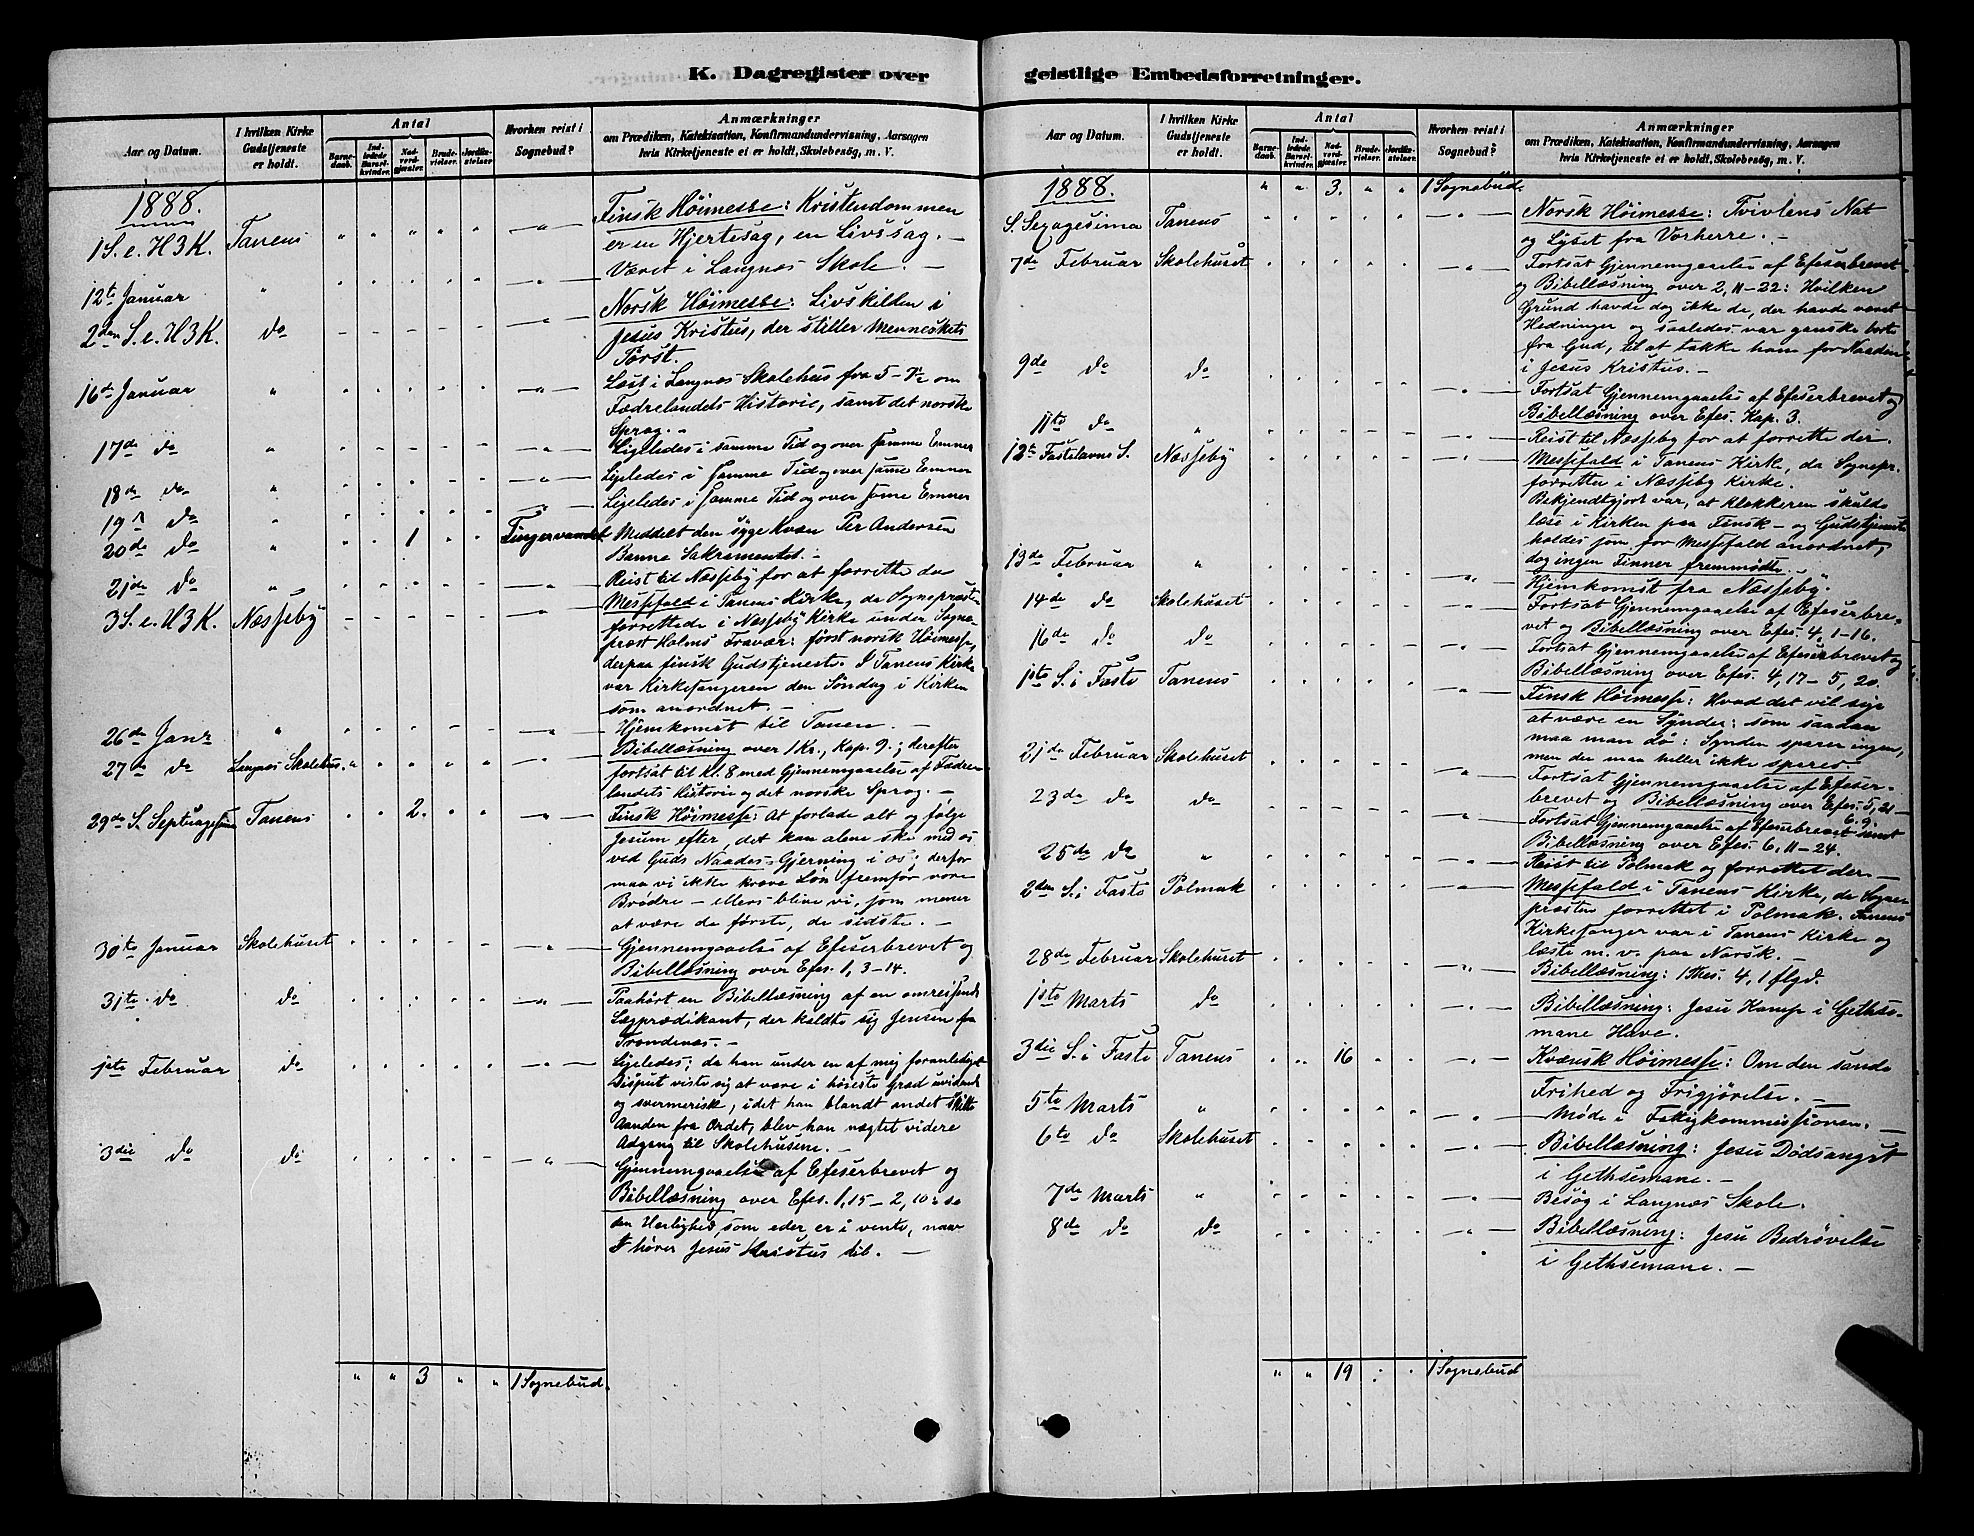 K. Dagregister over
Aar og Datum.
I hvilken Kirke Gudstjeneste er holdt.
Antal
Barnedaab.
Indledede Barselkvinder.
Nadverdgjæster.
Brudevielser.
Jordfæstelser.
Hvorhen reist i Sognebud?
Anmærkninger
om Prædiken, Katekisation, Konfirmandundervisning, Aarsagen
hvis Kirketjeneste ei er holdt, Skolebesög, m. V.
1888.
1 S. e. H3K. Tanens " " " " " —"— Finsk Höimesse: Kristendommen
er en Hjertesag, en Livssag. —
12te Januar " Været i Langnæs Skole. —
2den S. e. H3K. do Norsk Höimesse: Livskilden i
Jesus Kristus, der stiller Menneskets
Törst.
16de Januar " Læst i Langnæs Skolehus fra 5-7½ om
Fædrelandets Historie, samt det norske
Sprog. —
17de do " Ligeledes i samme Tid og over samme Emner
18de do " Ligeledes i samme Tid og over samme Emner
19de do " Ligeledes i samme Tid og over samme Emner
20de do " 1 Meddelt den syge Kvæn Per Andersen
Banne Sakramentet. —
21de do " Reist til Næsseby for at forrette der
3 S. e. H3K. Næsseby Messefald i Tanens Kirke, da Sognepræsten
forrettede i Næsseby Kirke under Sogne-
præst Holms Fravær: först norsk Höimesse,
derpaa finsk Gudstjeneste. I Tanens Kirke
var Kirkesangeren den Söndag i Kirken
som anordnet. —
26de Janr " Hjemkomst til Tanen. —
27de do Langnæs Skolehus. Bibellæsning over 1 Kr., Kap. 9.; derefter
fortsat til Kl. 8 med Gjennemgaaelse af Fædre-
landets Historie og det norske Sprog. —
29de S. Septuagesima Tanens 2. Finsk Höimesse: At forlade alt og fölge
Jesum efter, det kan alene ske med os
ved Guds Naades-Gjerning i os; derfor
maa vi ikke kræve Lön fremfor vore
Brödre — ellers blive vi, som mener
at være de förste, de sidste. —
30te Januar Skolehuset Gjennemgaaelse af Efeserbrevet og
Bibellæsning over Efes. 1, 3-14.
31te do do Paahört en Bibellæsning af en omreisende
Lægprædikant, der kaldte sig Jensen fra
Trondenæs. —
1ste Februar do Ligeledes; da han under en af mig foranlediget
Disput viste sig at være i höieste Grad uvidende
og sværmerisk, idet han blandt andet skilte
Aanden fra Ordet, blev han nægtet videre
Adgang til Skolehusene. —
3die do do Gjennemgaaelse af Efeserbrevet og
Bibellæsning over Efes. 1, 15 - 2, 10: se
den Herlighed, som eder er i vente, naar
I hører Jesus Kristus til. —
" " 3 " " 1 Sognebud.
geistlige Embedsforretninger.
Aar og Datum.
I hvilken Kirke Gudstjeneste er holdt.
Antal
Barnedaab.
Indledede Barselkvinder.
Nadverdgjæster.
Brudevielser.
Jordfæstelser.
Hvorhen reist i Sognebud?
Anmærkninger
om Prædiken, Katekisation, Konfirmandundervisning, Aarsagen
hvis Kirketjeneste ei er holdt, Skolebesög, m. V.
1888. " " 3. " " 1 Sognebud.
S. Sexagesima Tanens Norsk Höimesse: Tvivlens Nat
og Lyset fra Vorherre. —
7de Februar Skolehuset Fortsat Gjennemgaaelse af Efeserbrevet
og Bibellæsning over 2, 11-22: Hvilken
Grund havde dog ikke de, der havde været
Hedninger og saaledes var ganske borte
fra Gud, til at takke ham for Naaden
i Jesus Kristus. —
9de do do Fortsat Gjennemgaaelse af Efeserbrevet og
Bibellæsning over Efes. Kap. 3.
11te do " Reist til Næsseby for at forrette der.
12te Fastelavns S. Næsseby Messefald i Tanens Kirke, da Sognepr.
forretter i Næsseby Kirke.
Bekjendtgjort var, at Klokkeren skulde
læse i Kirken paa Finsk — og Gudstjeneste
holdes som for Messefald anordnet,
dog ingen Finner fremmödte.
13de Februar " Hjemkomst fra Næsseby.
14de do Skolehuset Fortsat Gjennemgaaelse af Efeserbre-
vet og Bibellæsning over Efes. 4, 1-16.
16de do do Fortsat Gjennemgaaelse af Efeserbrevet og
Bibellæsning over Efes. 4, 17 - 5, 20.
1ste S. i Faste Tanens Finsk Höimesse: Hvad det vil sige
at være en Synder: som saadan
maa man dö: Synden sparer ingen,
men der maa heller ikke spares. —
21de Februar Skolehuset Fortsat Gjennemgaaelse af Efeser-
brevet og Bibellæsning over Efes. 5, 21 -
6. 9.
23de do do Fortsat Gjennemgaaelse af Efeserbrevet samt
Bibellæsning over Efes. 6, 11-24.
25de do " Reist til Polmak og forrettet der. —
2den S. i Faste Polmak Messefald i Tanens Kirke, da Sogne-
præsten forrettet i Polmak. Tanens
Kirkesanger var i Tanens Kirke og
læste m. v. paa Norsk. —
28de Februar Skolehuset Bibellæsning: 1 Thes. 4, 1 flgd.
1ste Marts do Bibellæsning: Jesu Kamp i Gethse-
mane Have.
3die S. i Faste Tanens " " 16 Kvænsk Höimesse: Om den sande
Frihed og Frigjörelse. —
5te Marts " Möde i Fattigkommissionen. —
6te do Skolehuset Bibellæsning: Jesu Dödsangst
i Gethsemane. —
7de Marts " Besög i Langnæs Skole.
8de do do Bibellæsning: Jesu Bedrövelse
i Gethsemane. —
" " 19 : " 1 Sognebud